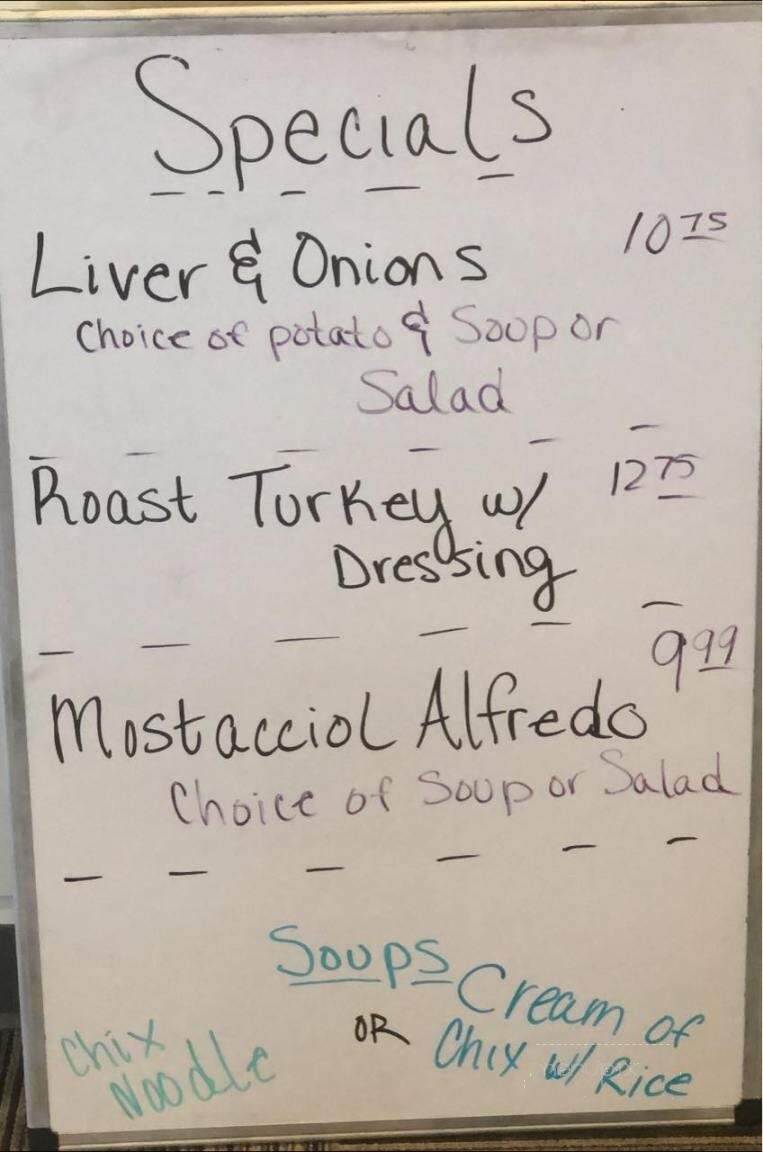 Specials
Liver & Onions 10 75
Choice of potato & Soup or
Salad
Roast Turkey w/ 12 75
Dressing
9 99
Mostacciol Alfredo
Choice of Soup or Salad
Soups
Chix Noodle
OR
Cream of
Chix w/ Rice